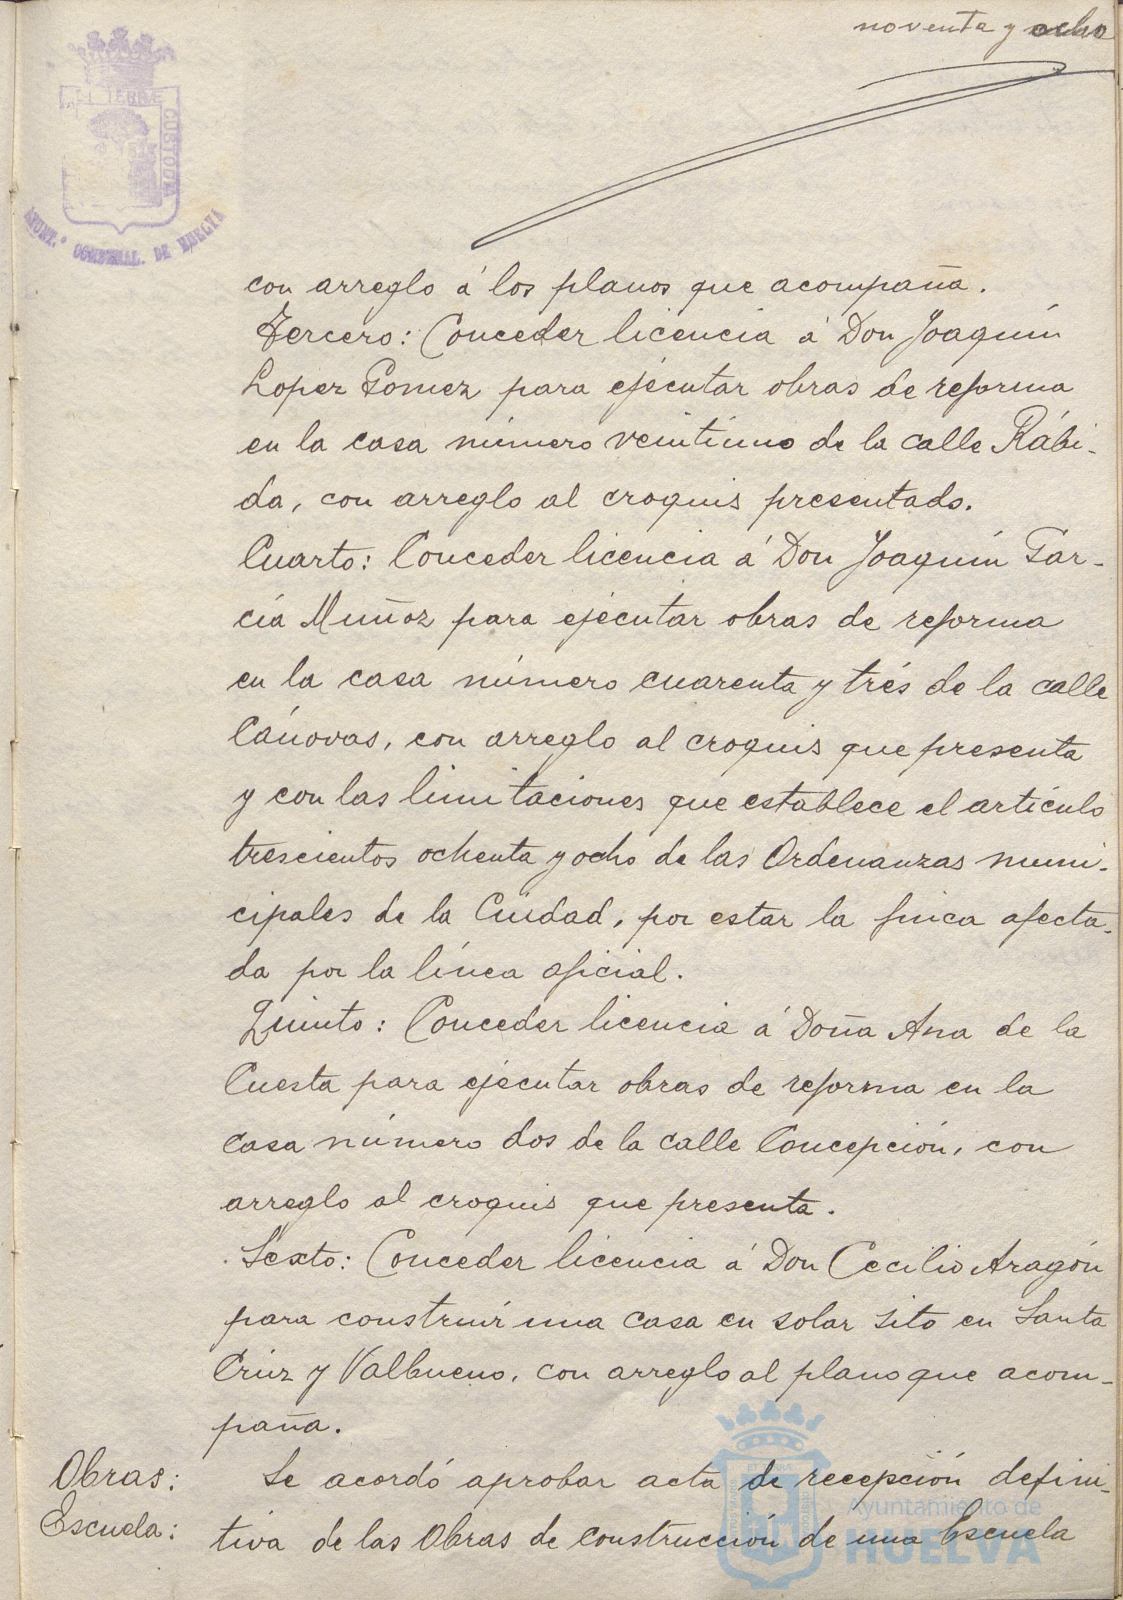 noventa y ocho
ET TERRÆ
CUSTODIA
AYUNT.º CONSTNAL. DE HUELVA
con arreglo á los planos que acompaña.
Tercero: Conceder licencia á Don Joaquín
Lopez Gomez para ejécutar obras de reforma
en la casa número veintiuno de la calle Rábi-
da, con arreglo al croquis presentado.
Cuarto: Conceder licencia á Don Joaquín Gar-
cía Muñoz para ejécutar obras de reforma
en la casa número cuarenta y trés de la calle
Cánovas, con arreglo al croquis que presenta
y con las limitaciones que establece el artículo
trescientos ochenta y ocho de las Ordenanzas muni-
cipales de la Ciudad, por estar la finca afecta-
da por la línea oficial.
Quinto: Conceder licencia á Doña Ana de la
Cuesta para ejécutar obras de reforma en la
casa número dos de la calle Concepción, con
arreglo al croquis que presenta.
Sexto: Conceder licencia á Don Cecilio Aragón
para construír una casa en solar sito en Santa
Cruz y Valbueno, con arreglo al plano que acom-
paña.
Obras:
Escuela:
Se acordó aprobar acta de recepción defini-
tiva de las Obras de construcción de una Escuela
Ayuntamiento de
HUELVA